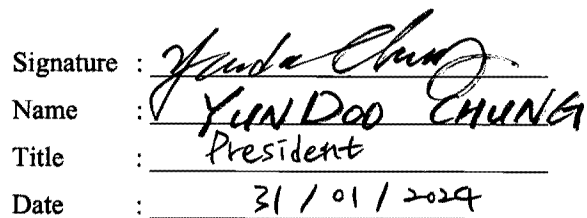 Signature : Yundo Chung
Name : YUNDOO CHUNG
Title : President
Date : 31 / 01 / 2024